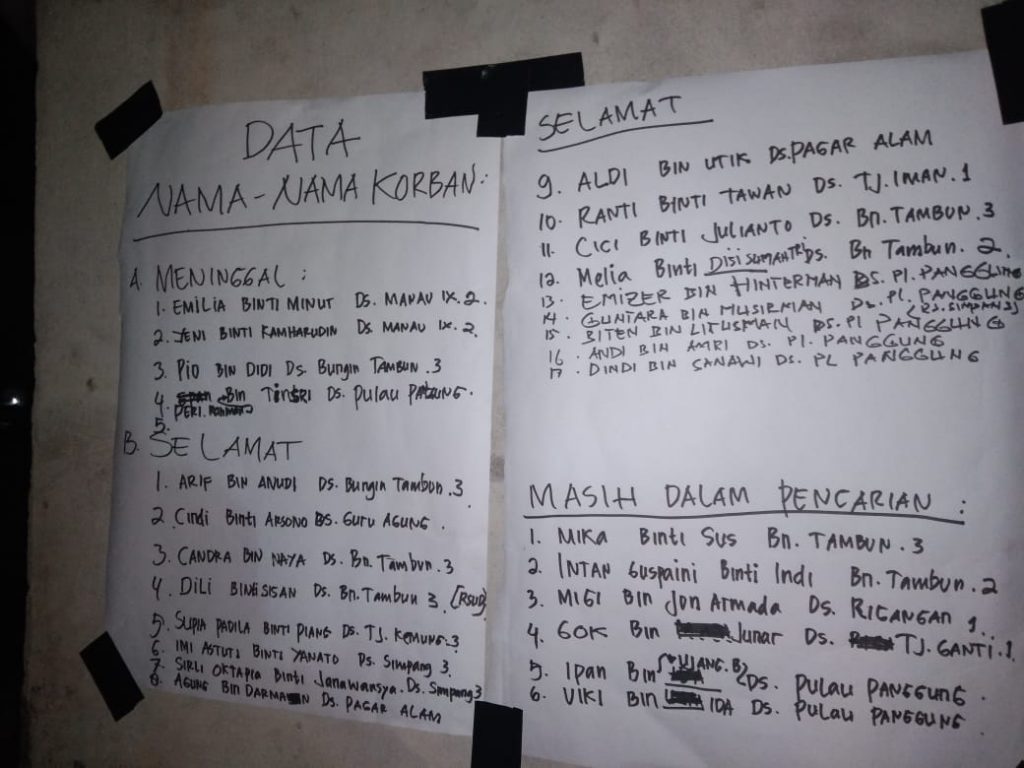 DATA
NAMA-NAMA KORBAN:
A. MENINGGAL :
1. EMILIA BINTI MINUT Ds. MANAU IX.2.
2. JENI BINTI KAMHARUDIN Ds. MANAU IX.2.
3. Pio BIN DIDI Ds. Bungin TAMBUN.3
4. Bin Ds. Pulau
PERI.
5.
B. SELAMAT
1. ARIF BIN ANUDI Ds. Bungin Tambun.3
2 Cindi Binti ARSONO DS. GURU AGUNG.
3. CANDRA BIN NAYA Ds. Bn. Tambun.3
4. DILI BINTI SISAN Ds. Bn. Tambun 3. (RSUD)
5. PADILA BINTI PIANG Ds. TJ. KEMUNG.3
6. IMI ASTUTI BINTI YANATO Ds. Simpang 3.
7. SIRLI OKTAPIA Binti Janawansya. Ds. Simpang 3
8. AGUNG BIN Ds. PAGAR ALAM
SELAMAT
9. ALDI BIN UTIK Ds. PAGAR ALAM
10. RANTI BINTI TAWAN Ds. TJ. IMAN.1
11. CICI BINTI JULIANTO Ds. Bn. TAMBUN.3
12. Melia Binti DISI Ds. Bn Tambun. 2
13. EMIZER BIN HINTERMAN DS. Pl. PANGGUNG
14. GUNTARA BIN MUSIRMAN Ds. Pl. PANGGUNG
(Ds. SIMPANG 3)
15. BITEN BIN LITUSMAN Ds. Pl PANGGUNG
16. ANDI BIN AMRI Ds. Pl. PANGGUNG
17. DINDI BIN SANAWI Ds. PL PANGGUNG
MASIH DALAM PENCARIAN :
1. MIKA Binti SUS Bn. TAMBUN.3
2. INTAN Guspaini Binti Indi Bn. Tambun.2
3. MIGI Bin Jon Armada Ds. RIGANGAN 1.
4. GOK Bin Junar Ds. TJ. GANTI.1
5. IPAN Bin UJANG.B Ds. PULAU PANGGUNG.
6. VIKI BIN IDA Ds. PULAU PANGGUNG